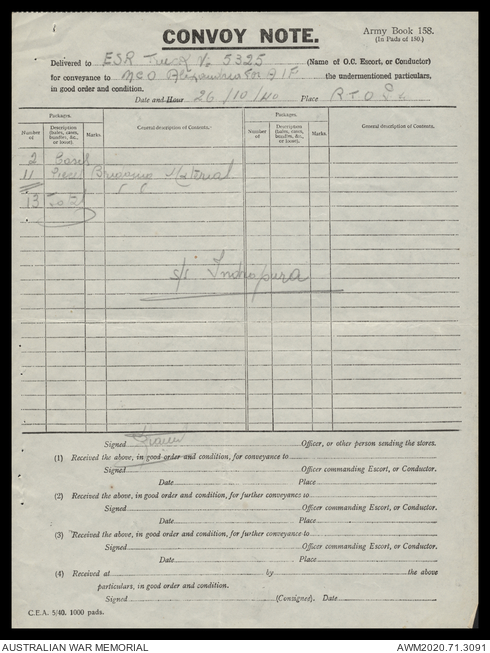 CONVOY NOTE.
Army Book 158.
(In Pads of 150.)
Delivered to ESR Truck No 5325 (Name of O.C. Escort, or Conductor)
for conveyance to NCO Alexandria for AIF the undermentioned particulars,
in good order and condition.
Date and Hour 26/10/40 Place R T O
Packages.
Number of
Description (bales, cases, bundles, &c., or loose).
Marks.
General description of Contents.
Packages.
Number of
Description (bales, cases, bundles, &c., or loose).
Marks.
General description of Contents.
2
11 Bridging Material
13 Total
s/s Indrapura
Signed Officer, or other person sending the stores.
(1) Received the above, in good order and condition, for conveyance to
Signed Officer commanding Escort, or Conductor.
Date Place
(2) Received the above, in good order and condition, for further conveyance to
Signed Officer commanding Escort, or Conductor.
Date Place
(3) Received the above, in good order and condition, for further conveyance to
Signed Officer commanding Escort, or Conductor.
Date Place
(4) Received at by the above
particulars, in good order and condition.
Signed (Consignee). Date
C.E.A. 5/40. 1000 pads.
AUSTRALIAN WAR MEMORIAL AWM2020.71.3091